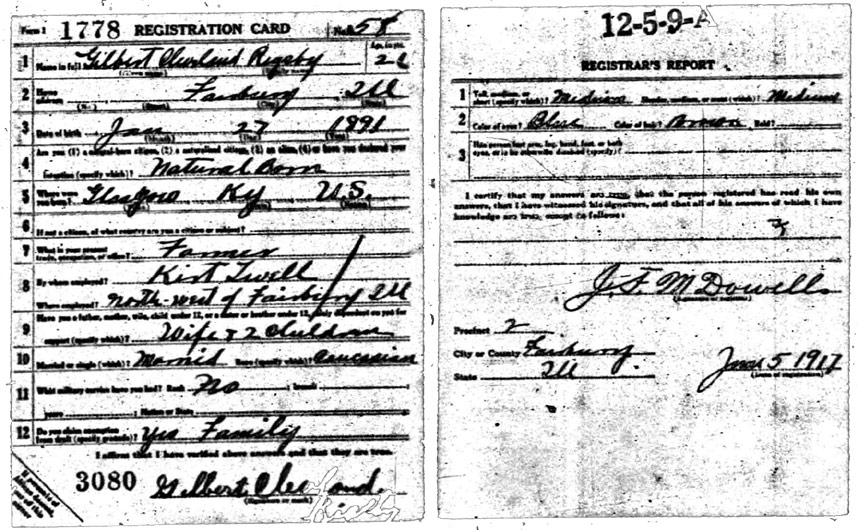 Form 1 1778 REGISTRATION CARD No. 58
1 Name in full Gilbert Cleveland Rigsby Age, in yrs.
(Given name) (Family name)
2 Home address Fairbury Ill
(No.) (Street) (City) (State)
3 Date of birth Jan 27 1891
(Month) (Day) (Year)
Are you (1) a natural-born citizen, (2) a naturalized citizen, (3) an alien, (4) or have you declared your
4 intention (specify which)? Natural Born
5 Where were you born? Glasgow Ky U.S.
(Town) (State) (Nation)
6 If not a citizen, of what country are you a citizen or subject?
7 What is your present trade, occupation, or office? Farmer
8 By whom employed? Kirt
Where employed? North-west of Fairbury Ill
Have you a father, mother, wife, child under 12, or a sister or brother under 12, solely dependent on you for
9 support (specify which)? Wife & 2 Children
10 Married or single (which)? Married Race (specify which)? Caucasian
11 What military service have you had? Rank No ; branch ;
years ; Nation or State
12 Do you claim exemption from draft (specify grounds)? Yes Family
I affirm that I have verified above answers and that they are true.
3080 Gilbert Cleveland Rigsby
(Signature or mark)
12-5-9-A
REGISTRAR'S REPORT
1 Tall, medium, or short (specify which)? Medium Slender, medium, or stout (which)? Medium
2 Color of eyes? Blue Color of hair? Brown Bald?
3 Has person lost arm, leg, hand, foot, or both eyes, or is he otherwise disabled (specify)?
I certify that my answers are true, that the person registered has read his own
answers, that I have witnessed his signature, and that all of his answers of which I have
knowledge are true, except as follows:
J. F. McDowell
(Signature of registrar)
Precinct 2
City or County Fairbury
State Ill
June 5 1917
(Date of registration)